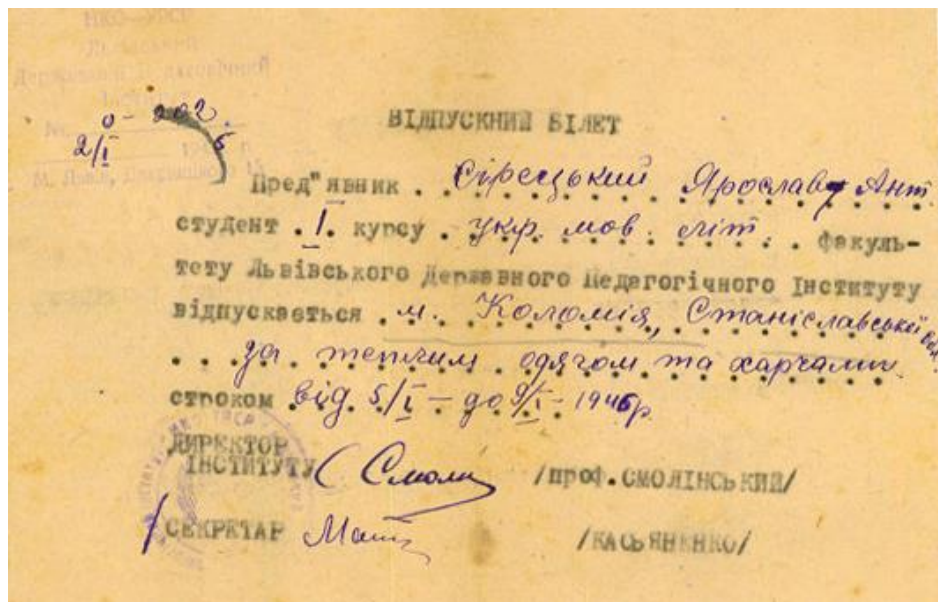 НКО—УРСР
Львівський
Державний Педагогічний
Інститут
№ 0-202.
2/I 1946 р.
м. Львів,
ВІДПУСКНИЙ БІЛЕТ
Пред"явник . Сірецький Ярослав Ант.
студент . I. курсу . укр. мов. літ. . факуль-
тету Львівського Державного Педагогічного Інституту
відпускається . м. Коломія, Станіславської обл.
. . за теплим одягом та харчами.
строком від 5/I – до 9/I - 1946р.
ДИРЕКТОР
ІНСТИТУТУ /проф.СМОЛІНСЬКИЙ/
/СЕКРЕТАР /КАСЬЯНЕНКО/